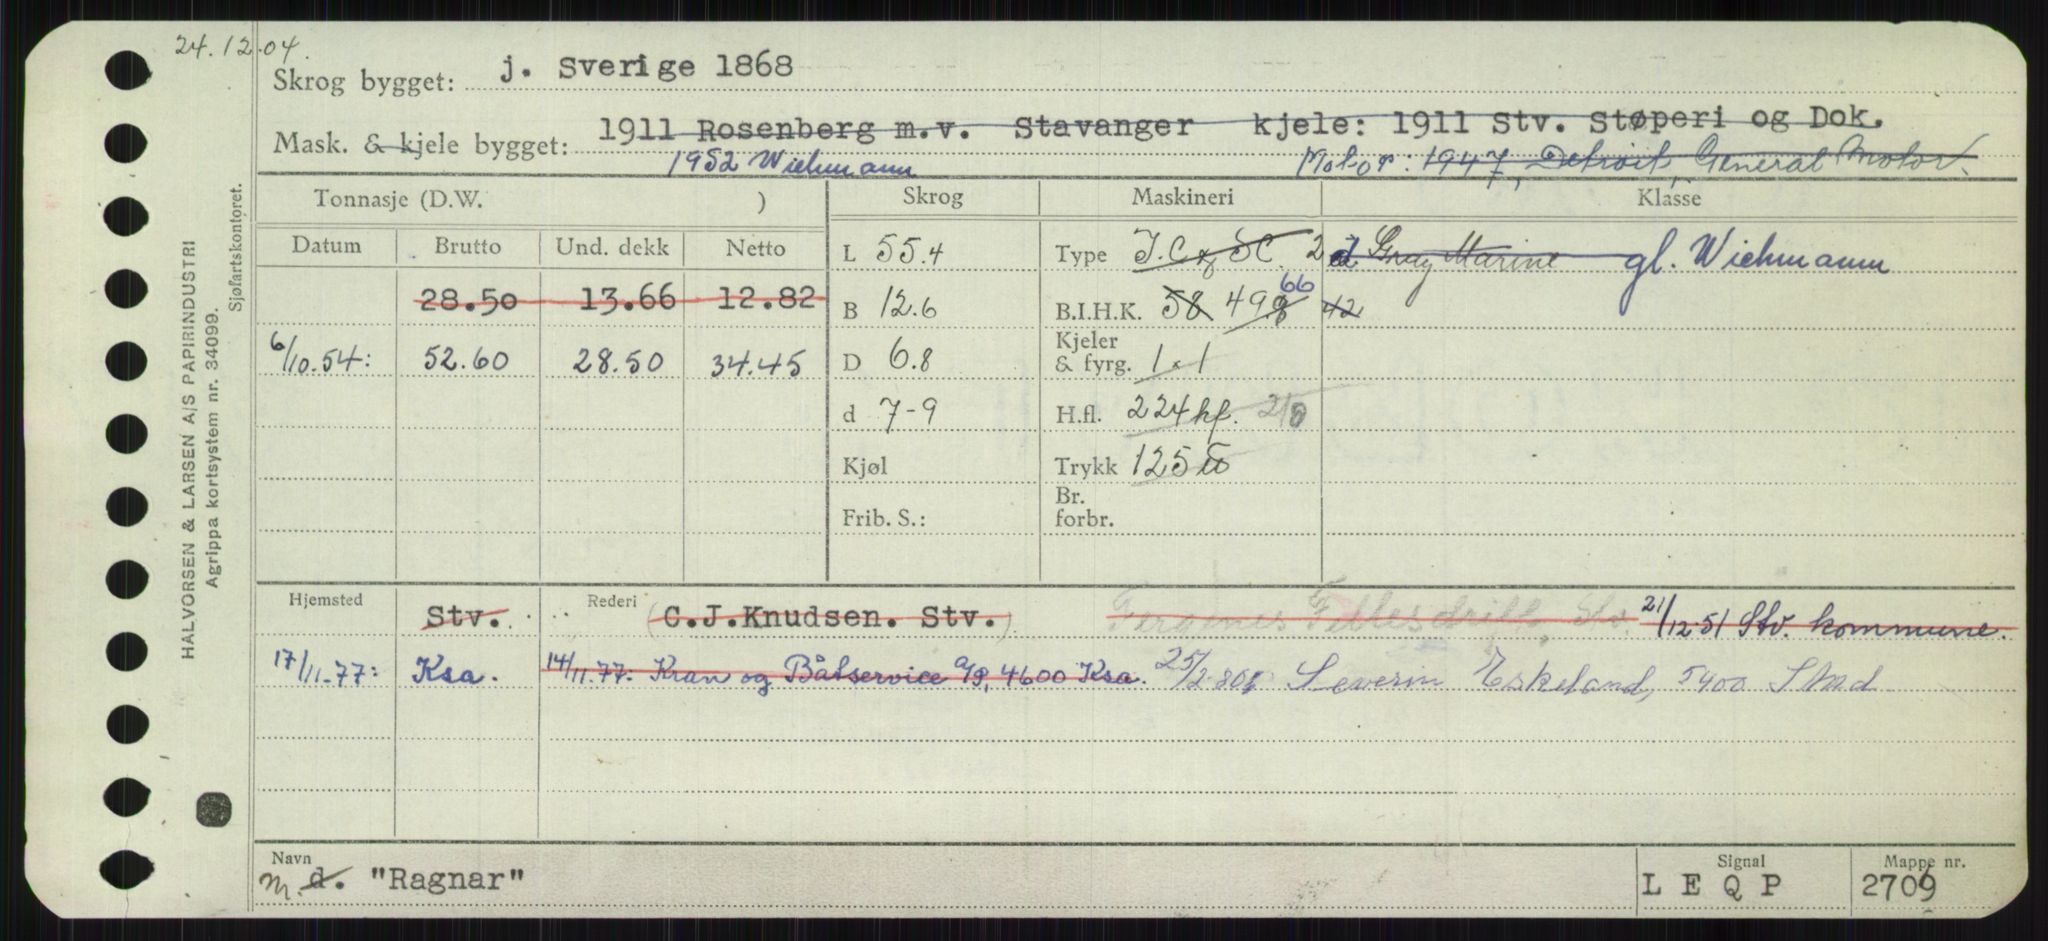 24.12.04.
Skrog bygget: j. Sverige 1868
Mask. & kjele bygget: 1911 Rosenberg m.v. Stavanger kjele: 1911 Stv. Støperi og Dok.
1952 Wichmann Motor: 1947, Detroit, General Motor
Tonnasje (D.W. ) Skrog Maskineri Klasse
Datum Brutto Und. dekk Netto L 55.4 Type 2 Gray Marine gl. Wichmann
28.50 13.66 12.82 B 12.6 B.I.H.K. 58 49.8 66 42
6/10.54: 52.60 28.50 34.45 D 6.8 Kjeler & fyrg. 1 x 1
d 7-9 H.fl. 224 kf. 218
Kjøl Trykk 125
Frib. S.: Br. forbr.
Hjemsted Stv. Rederi (C.J.Knudsen. Stv.) Fergenes Fellesdrift, Stv. 21/12-51 Stv. kommune.
17/11-77: Ksa. 14/11.77: Kran og Båtservice A/S, 4600 Ksa. 25/2-80: Severin Eskeland, 5400 Stord
Navn m. d. "Ragnar" Signal L E Q P Mappe nr. 2709
HALVORSEN & LARSEN A/S PAPIRINDUSTRI
Agrippa kortsystem nr. 34099.
Sjøfartskontoret.